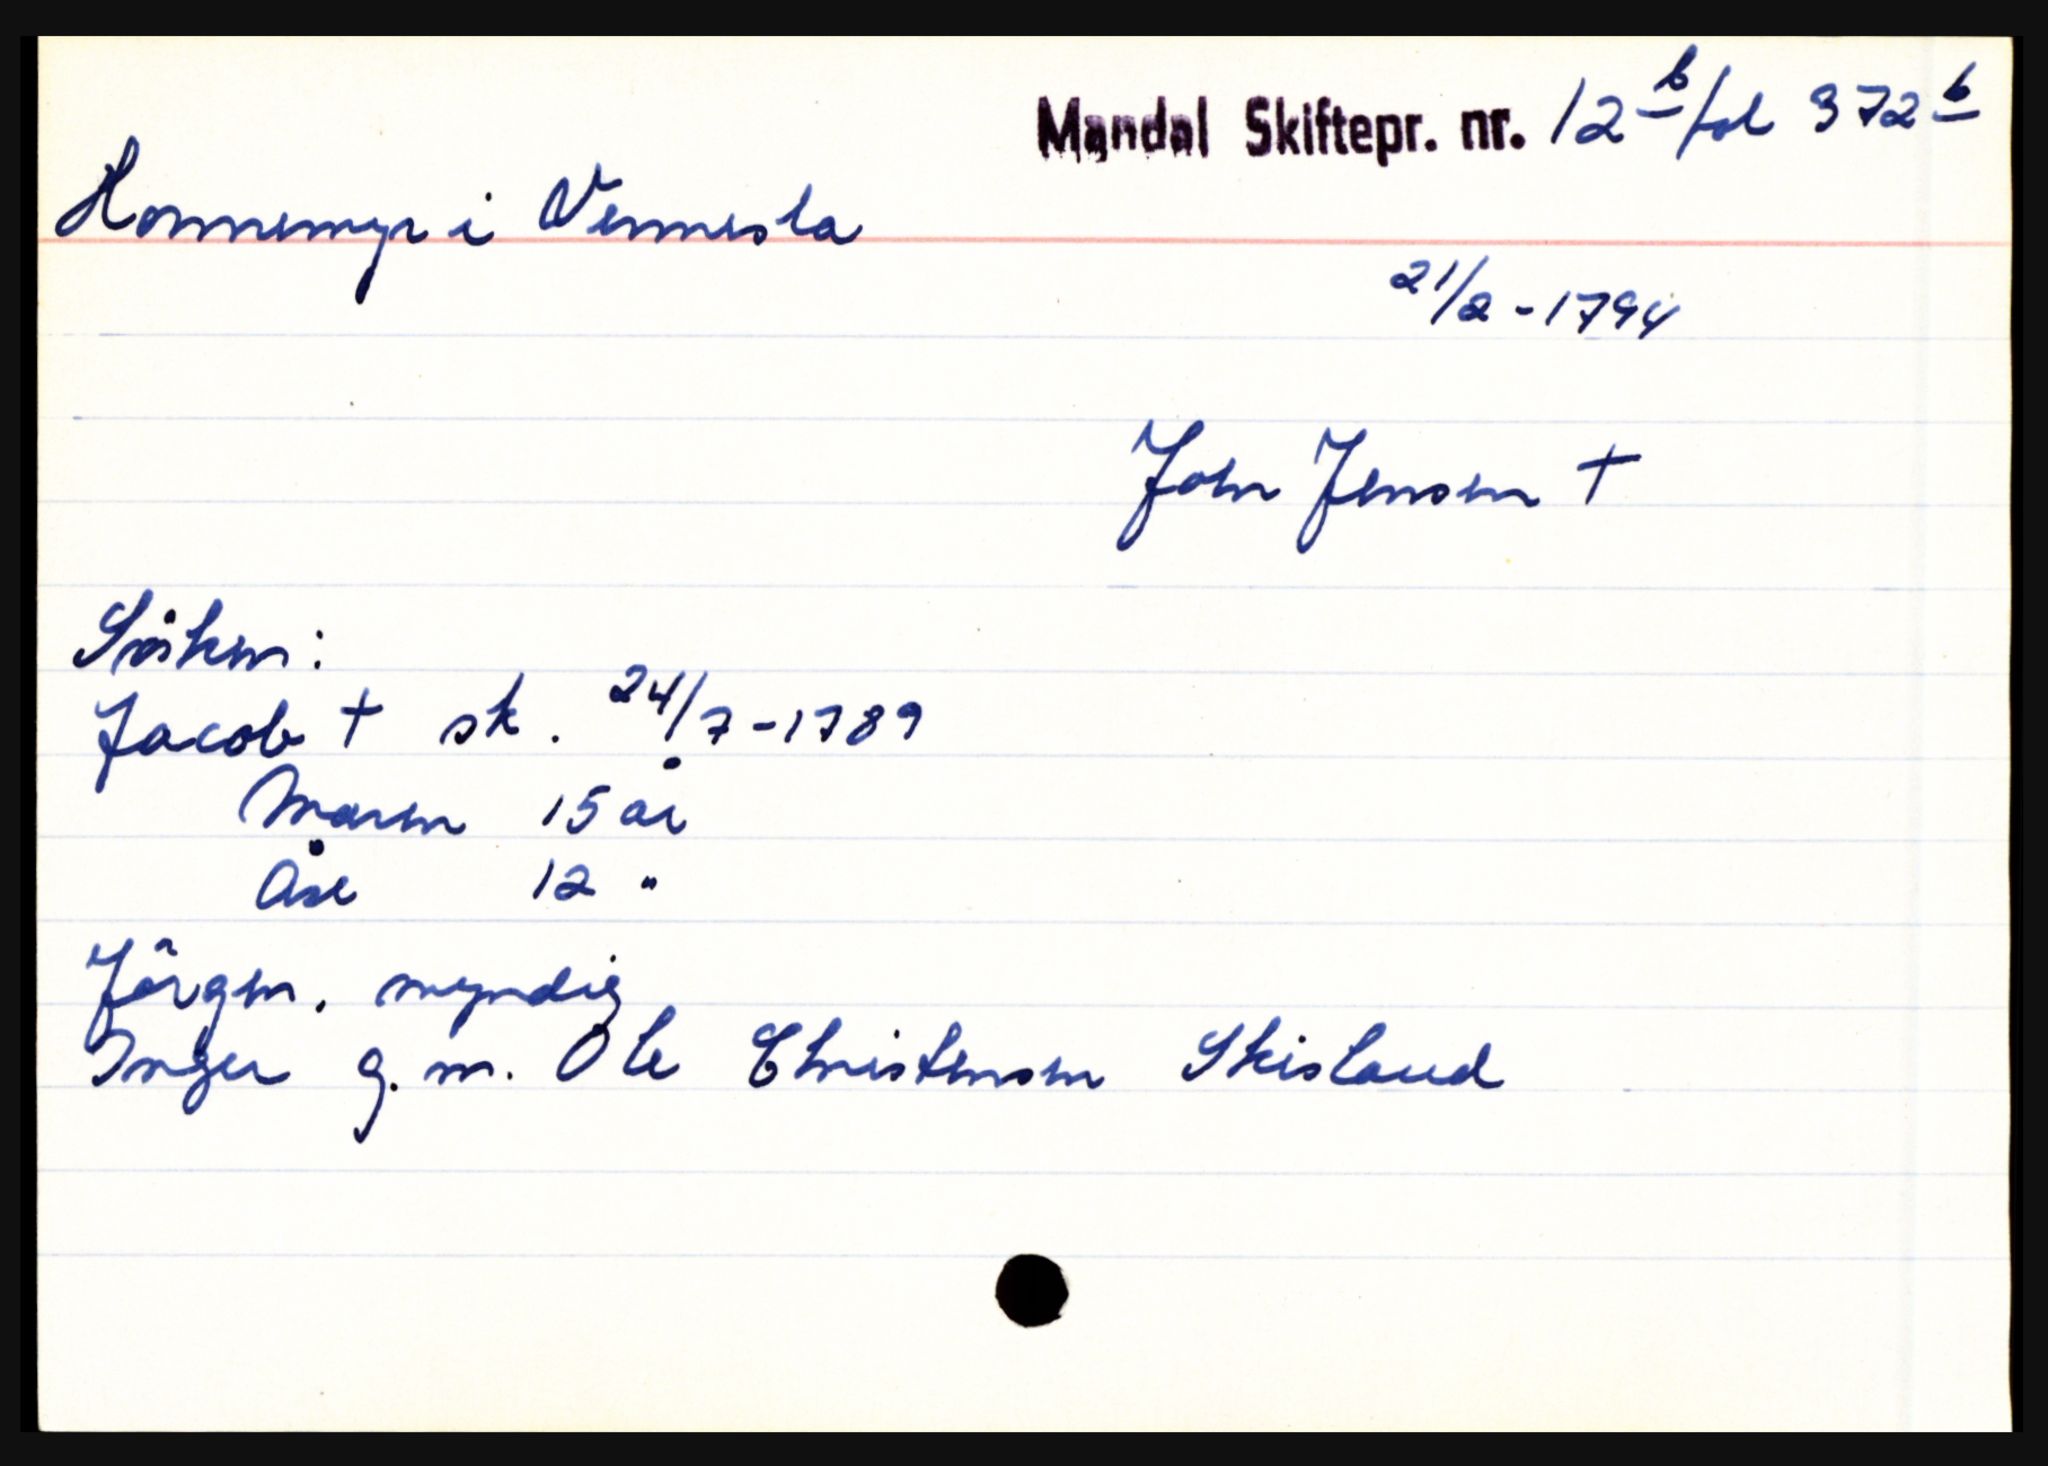 Mandal Skiftepr. nr. 12 b fol 372 b
Honnemyr i Vennesla
21/2 - 1794
John Jensen †
Søsken:
Jacob † sk. 24/7 - 1789
Maren 15 år
Åse 12 "
Jörgen, myndig
Inger g. m. Ole Christensen Skisland